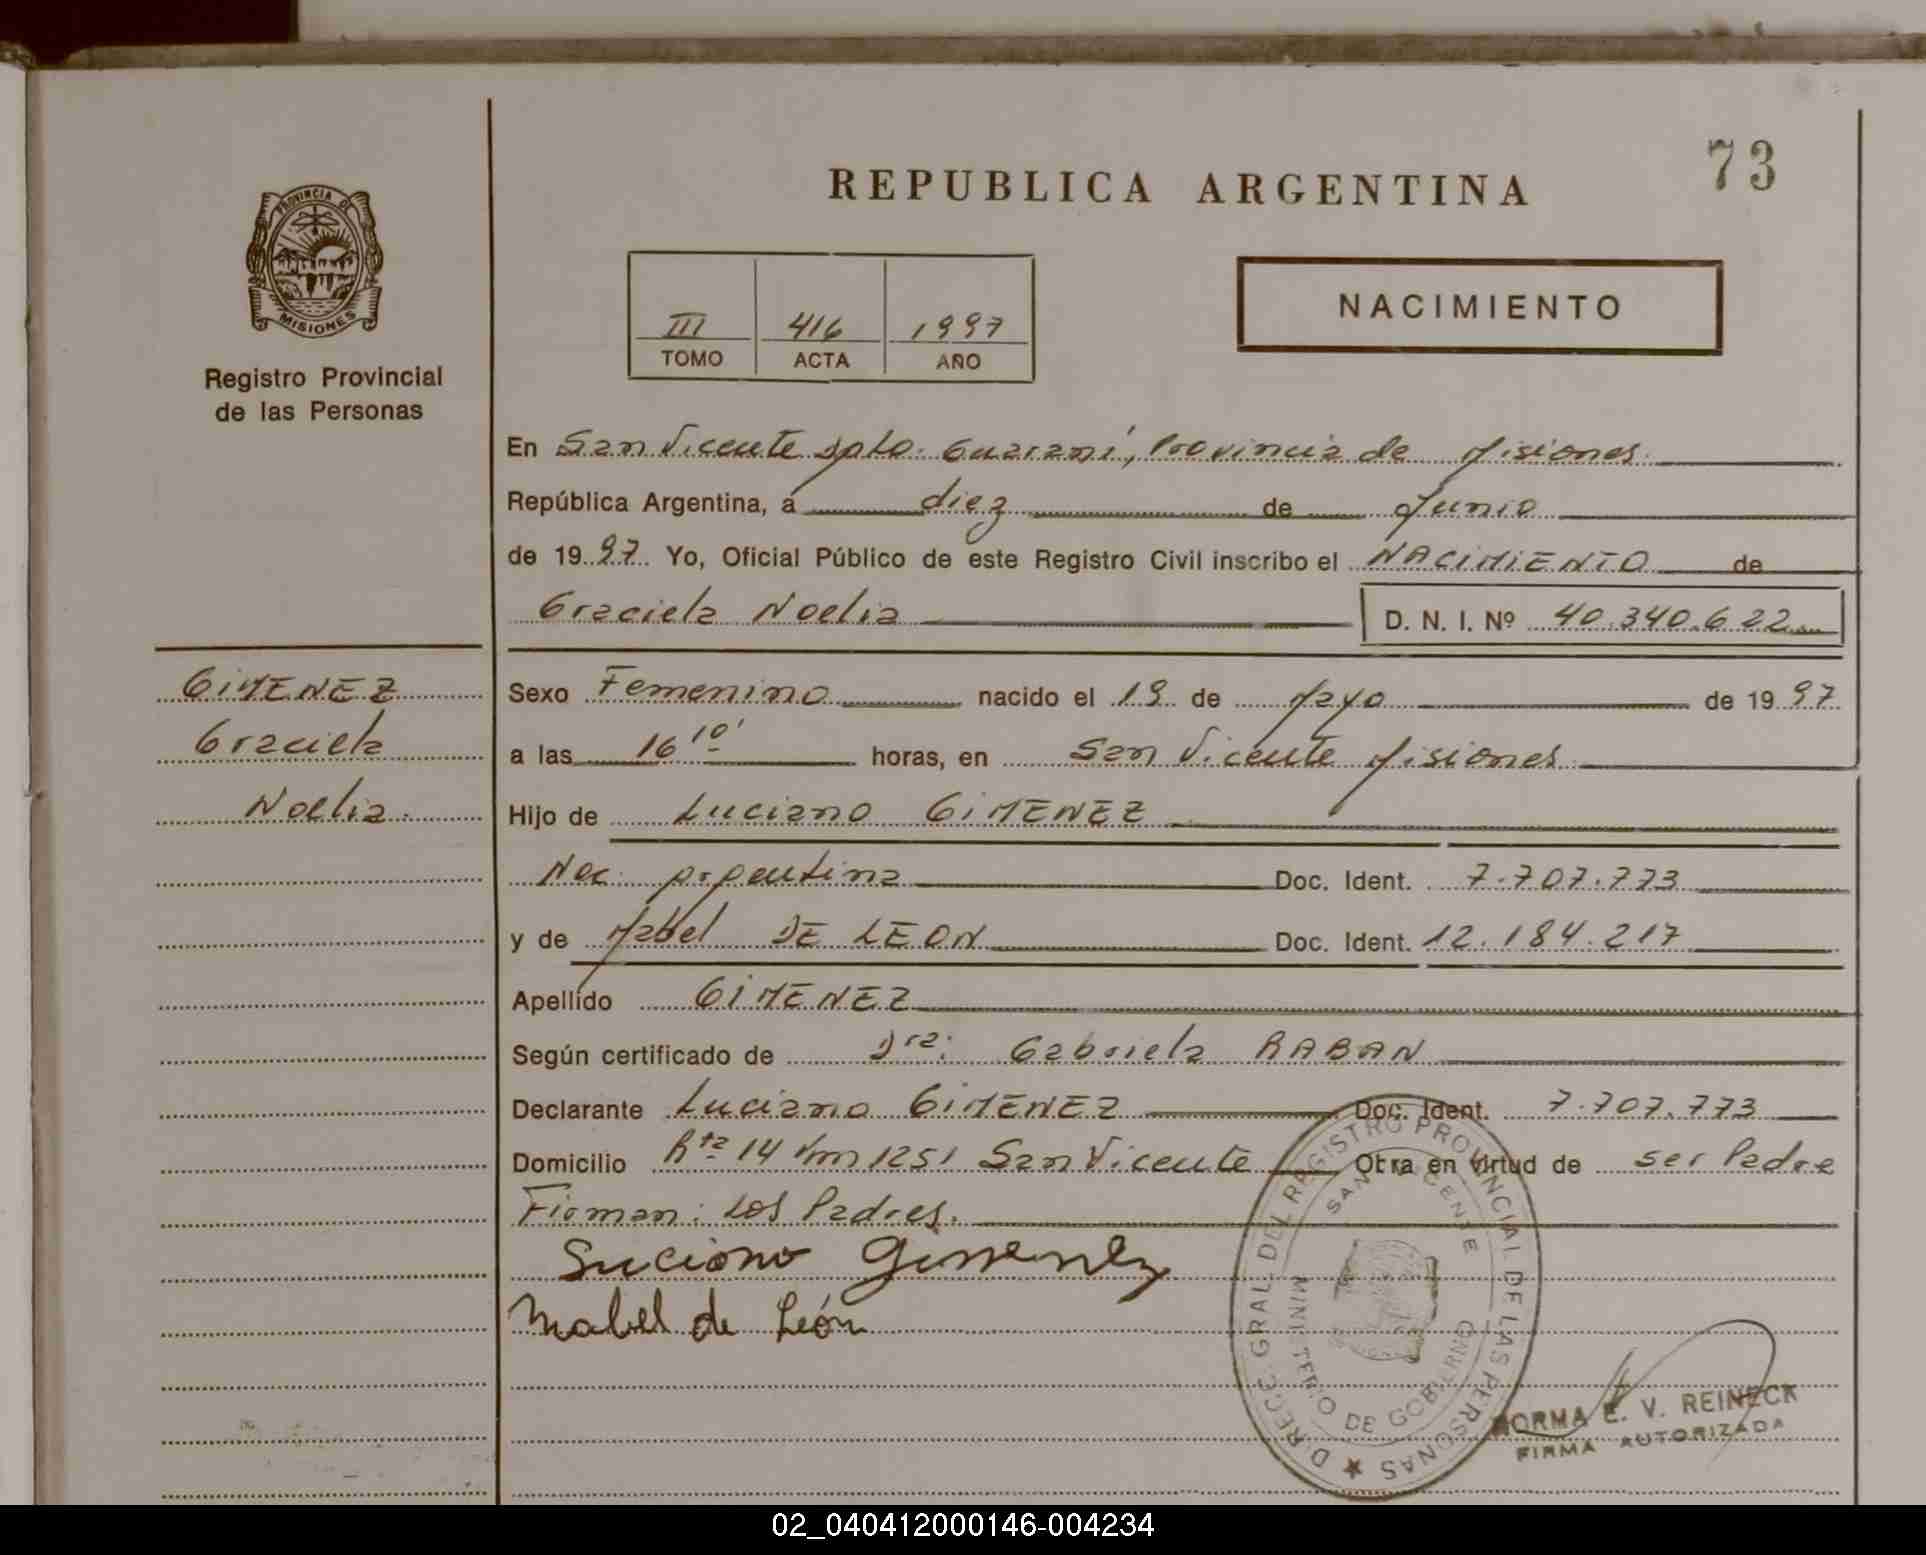 REPUBLICA ARGENTINA
73
PROVINCIA DE
MISIONES
Registro Provincial
de las Personas
III 416 1997
TOMO ACTA AÑO
NACIMIENTO
En San Vicente Dpto. Guaraní, Provincia de Misiones
República Argentina, a diez de Junio
de 1997 Yo, Oficial Público de este Registro Civil inscribo el NACIMIENTO de
Graciela Noelia D. N. I. Nº 40.340.622
GIMENEZ
Graciela
Noelia.
Sexo Femenino nacido el 19 de Mayo de 1997
a las 16 10' horas, en San Vicente Misiones
Hijo de Luciano GIMENEZ
Nac. Argentina Doc. Ident. 7.707.773
y de Mabel DE LEON Doc. Ident. 12.184.217
Apellido GIMENEZ
Según certificado de Dra. Gabriela RABAN
Declarante Luciano GIMENEZ Doc. Ident. 7.707.773
Domicilio Rta 14 Km 1251 San Vicente Obra en virtud de ser Padre
Firman: Los Padres.
Luciano Gimenez
Mabel de León
DIRECC. GRAL. DEL REGISTRO PROVINCIAL DE LAS PERSONAS
SAN VICENTE
MINISTERIO DE GOBIERNO
NORMA E. V. REINECK
FIRMA AUTORIZADA
02_040412000146-004234